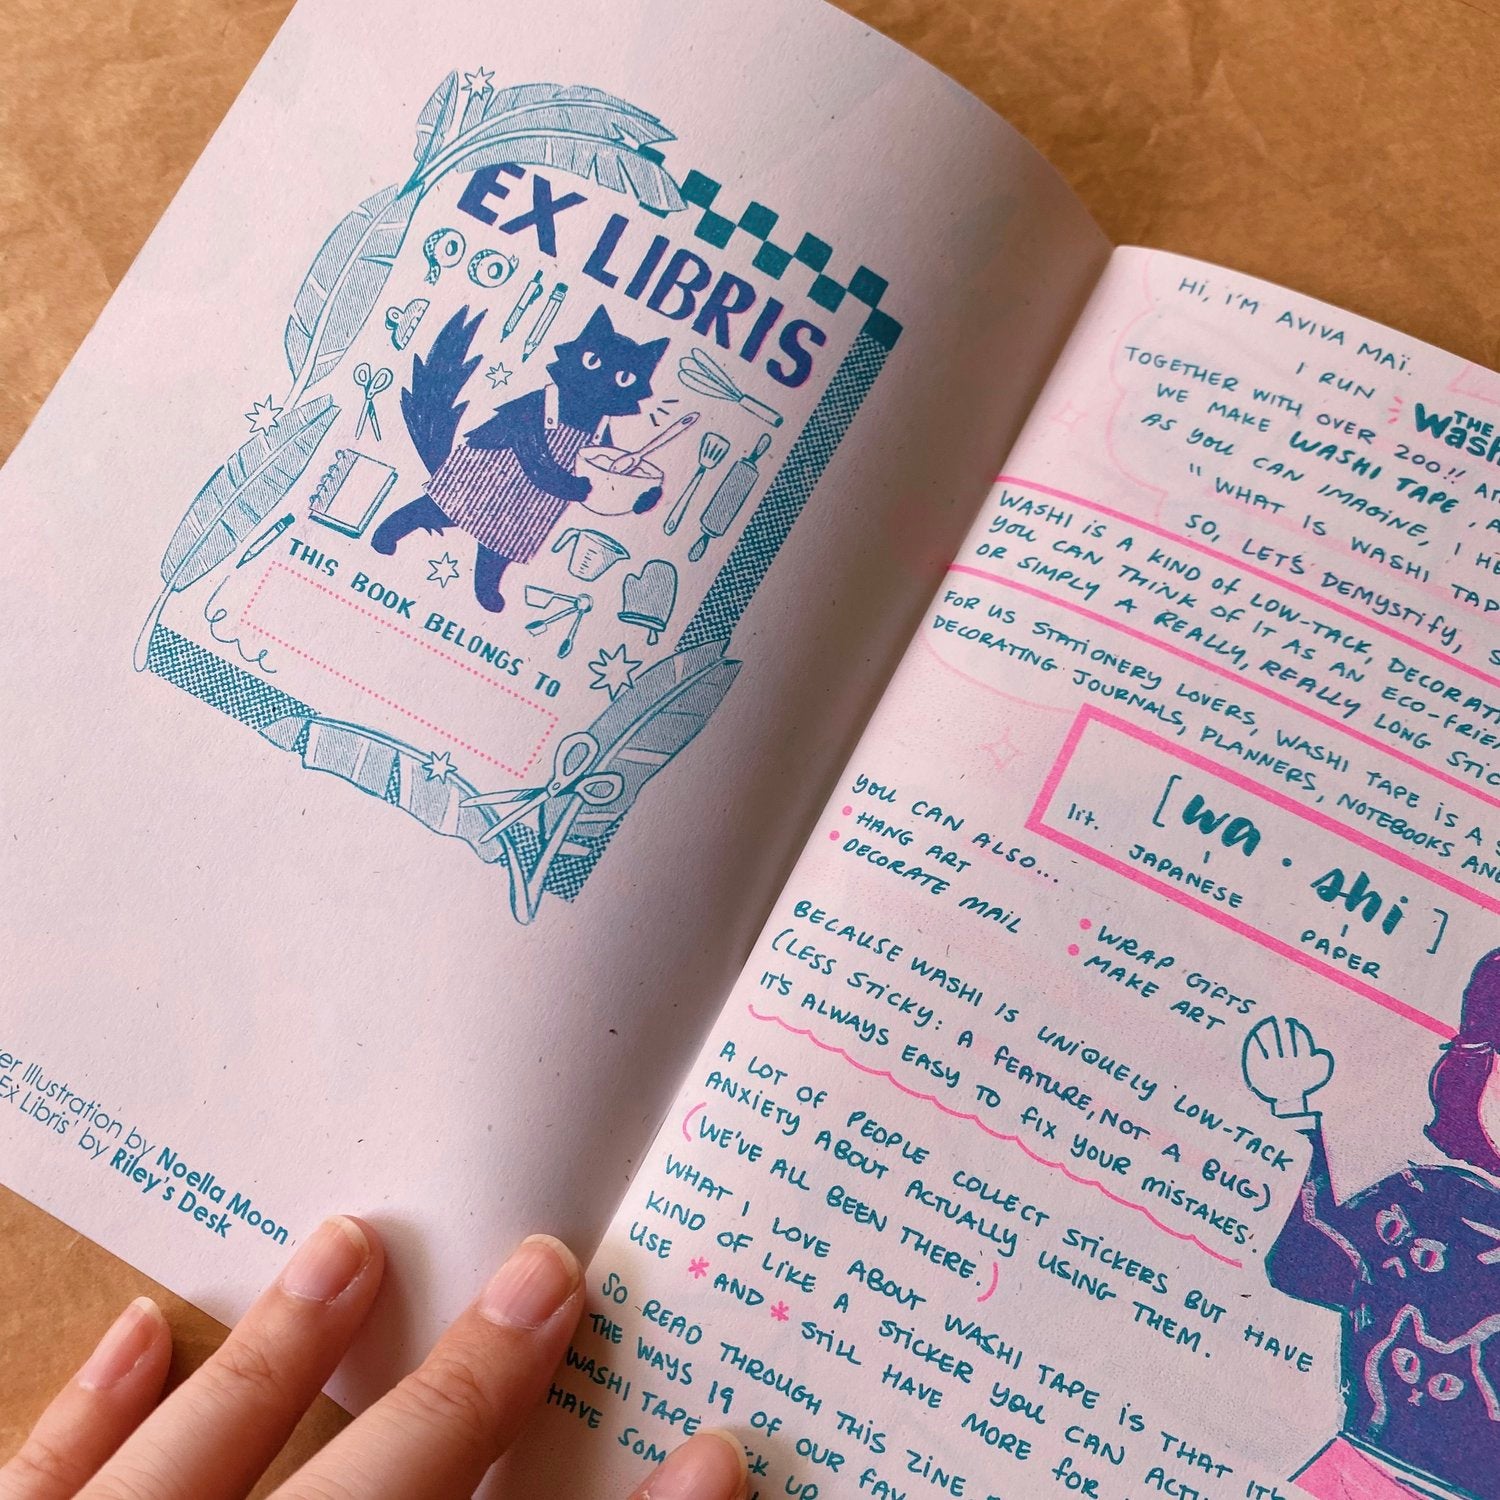 EX LIBRIS
THIS BOOK BELONGS TO
Illustration by Noella Moon
Ex Libris' by Riley's Desk
HI, I'M AVIVA MAÏ.
I RUN THE
TOGETHER WITH OVER 200!!
WE MAKE WASHI TAPE,
AS YOU CAN IMAGINE, I
"WHAT IS WASHI
SO, LET'S DEMYSTIFY,
WASHI IS A KIND OF LOW-TACK,
YOU CAN THINK OF IT AS AN
OR SIMPLY A REALLY, REALLY LONG
FOR US STATIONERY LOVERS, WASHI TAPE IS A
DECORATING JOURNALS, PLANNERS, NOTEBOOKS
lit. [wa · shi]
JAPANESE PAPER
YOU CAN ALSO...
• HANG ART
• DECORATE MAIL
• WRAP GIFTS
• MAKE ART
BECAUSE WASHI IS UNIQUELY LOW-TACK
(LESS STICKY: A FEATURE, NOT A BUG)
IT'S ALWAYS EASY TO FIX YOUR MISTAKES.
A LOT OF PEOPLE COLLECT STICKERS BUT HAVE
ANXIETY ABOUT ACTUALLY USING THEM.
(WE'VE ALL BEEN THERE.)
WHAT I LOVE ABOUT WASHI TAPE IS THAT IT'S
KIND OF LIKE A STICKER YOU CAN
USE * AND * STILL HAVE MORE FOR
SO READ THROUGH THIS ZINE
THE WAYS 19 OF OUR
WASHI TAPE UP
HAVE